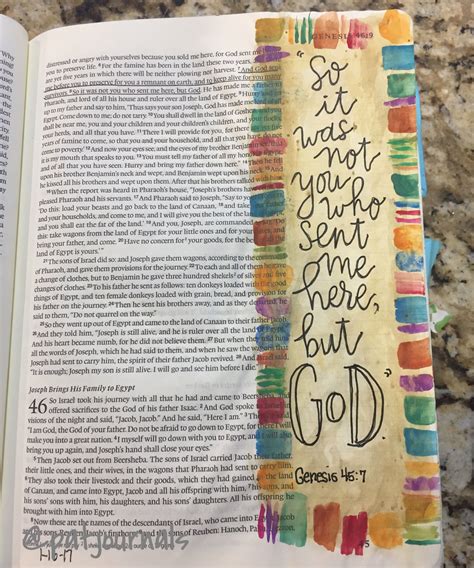 GENESIS 46:19
distressed or angry with yourselves because you sold me here, for God sent me
you to preserve life. 6 For the famine has been in the land these two years,
are yet five years in which there will be neither plowing nor harvest. 7 And God sent
me before you to preserve for you a remnant on earth, and to keep alive for you many
survivors. 8 So it was not you who sent me here, but God. He has made me a father
to Pharaoh, and lord of all his house and ruler over all the land of Egypt. 9 Hurry
and go up to my father and say to him, 'Thus says your son Joseph, God has made me lord
of all Egypt. Come down to me; do not tarry. 10 You shall dwell in the land of Goshen, and
shall be near me, you and your children and your children's children, and your
your herds, and all that you have. 11 There I will provide for you, for there are
years of famine to come, so that you and your household, and all that you have, do not
come to poverty.' 12 And now your eyes see, and the eyes of my brother Benjamin
it is my mouth that speaks to you. 13 You must tell my father of all my honor
of all that you have seen. Hurry and bring my father down here." 14 Then he fell
upon his brother Benjamin's neck and wept, and Benjamin wept upon his neck.
he kissed all his brothers and wept upon them. After that his brothers talked with
16 When the report was heard in Pharaoh's house, "Joseph's brothers have
pleased Pharaoh and his servants. 17 And Pharaoh said to Joseph, "Say to
'Do this: load your beasts and go back to the land of Canaan, 18 and take your
and your households, and come to me, and I will give you the best of the land
you shall eat the fat of the land.' 19 And you, Joseph, are commanded to
this: take wagons from the land of Egypt for your little ones and for your
bring your father, and come. 20 Have no concern for your goods, for the best
land of Egypt is yours.'"
21 The sons of Israel did so: and Joseph gave them wagons, according to the
of Pharaoh, and gave them provisions for the journey. 22 To each and all of them he gave
change of clothes, but to Benjamin he gave three hundred shekels of silver and five
changes of clothes. 23 To his father he sent as follows: ten donkeys loaded with
things of Egypt, and ten female donkeys loaded with grain, bread, and provision
his father on the journey. 24 Then he sent his brothers away, and as they departed, he
said to them, "Do not quarrel on the way."
25 So they went up out of Egypt and came to the land of Canaan to their father
26 And they told him, "Joseph is still alive, and he is ruler over all the land
And his heart became numb, for he did not believe them. 27 But when they told
all the words of Joseph, which he had said to them, and when he saw the wagons that
Joseph had sent to carry him, the spirit of their father Jacob revived. 28 And Israel
"It is enough; Joseph my son is still alive. I will go and see him before I die."
Joseph Brings His Family to Egypt
46 So Israel took his journey with all that he had and came to Beersheba, and
offered sacrifices to the God of his father Isaac. 2 And God spoke to Israel in
visions of the night and said, "Jacob, Jacob." And he said, "Here I am." 3 Then
"I am God, the God of your father. Do not be afraid to go down to Egypt, for there I
make you into a great nation. 4 I myself will go down with you to Egypt, and I will
bring you up again, and Joseph's hand shall close your eyes."
5 Then Jacob set out from Beersheba. The sons of Israel carried Jacob their father,
their little ones, and their wives, in the wagons that Pharaoh had sent to carry him.
6 They also took their livestock and their goods, which they had gained in the land
of Canaan, and came into Egypt, Jacob and all his offspring with him, 7 his sons, and
his sons' sons with him, his daughters, and his sons' daughters. All his offspring he
brought with him into Egypt.
8 Now these are the names of the descendants of Israel, who came into Egypt,
Jacob and his sons. Reuben, Jacob's firstborn, 9 and the sons of Reuben: Hanoch, Pallu,
"So
it
was
not
you who
sent
me
here,
but
GOD."
Genesis 45:7
@patjournals
1-16-17